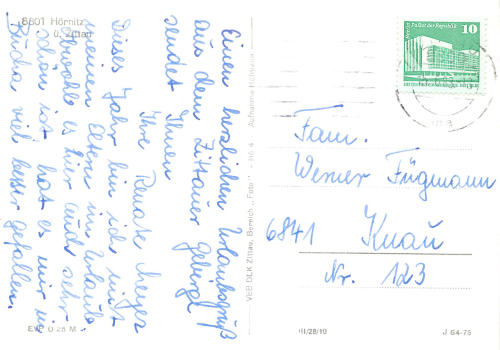 8801 Hörnitz
ü. Zittau
Einen herzlichen Urlaubsgruß
aus dem Zittauer Gebirge
sendet Ihnen
Ihre Renate Meyer
Dieses Jahr bin ich mit
meinen Eltern im Urlaub.
Obwohl es hier auch sehr
schön ist, hat es mir in
viel besser gefallen.
EVP 0 25 M
VEB DLK Zittau, Bereich „Foto“
Palast der Republik
10
Fam.
Werner Fügmann
6841 Knau
Nr. 123
III/28/19
J 64-75